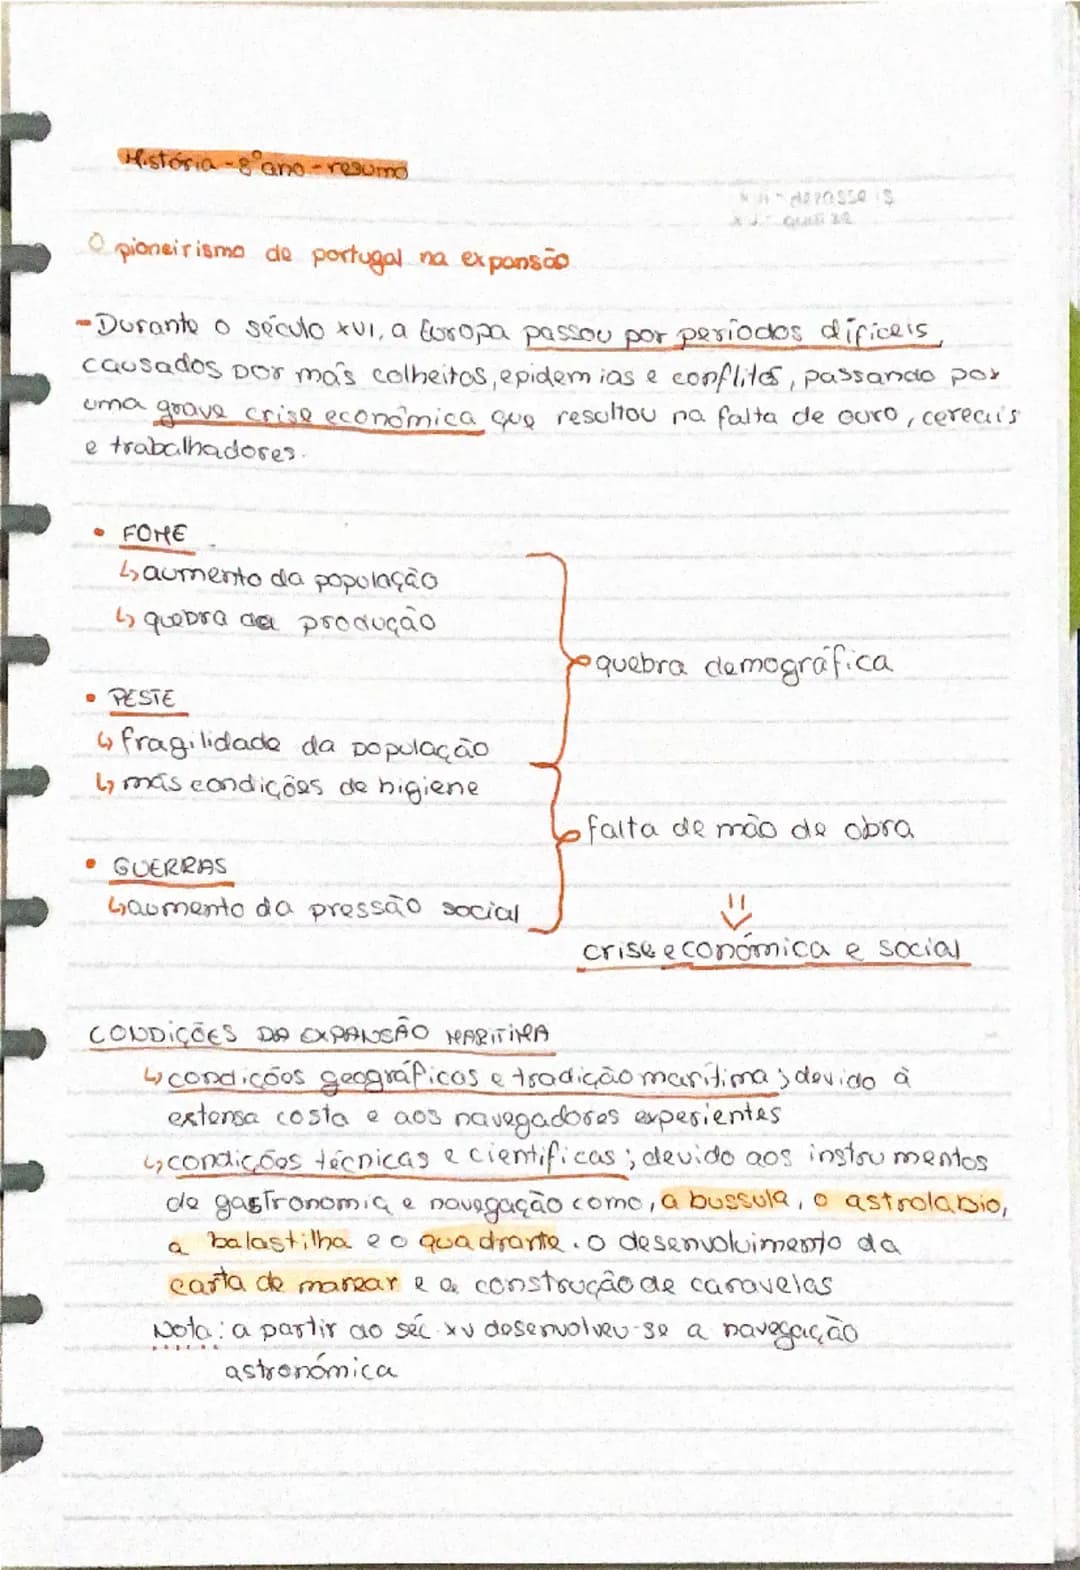 História - 8º ano - resumo
XVI - dezasseis
XV - quinze
O pioneirismo de portugal na expansão
- Durante o século XVI, a Europa passou por períodos difíceis,
causados por más colheitas, epidemias e conflitos, passando por
uma grave crise económica que resultou na falta de ouro, cereais
e trabalhadores.
• FOME
↳ aumento da população
↳ quebra da produção
quebra demográfica
• PESTE
↳ fragilidade da população
↳ más condições de higiene
falta de mão de obra
• GUERRAS
↳ aumento da pressão social
⇓
crise económica e social
CONDIÇÕES DA EXPANSÃO MARITIMA
↳ condições geográficas e tradição marítima; devido à
extensa costa e aos navegadores experientes
↳ condições técnicas e cientificas; devido aos instrumentos
de gastronomia e navegação como, a bussula, o astrolabio,
a balastilha e o quadrante. O desenvolvimento da
carta de marear e a construção de caravelas
Nota: a partir do séc. XV desenvolveu-se a navegação
astronómica